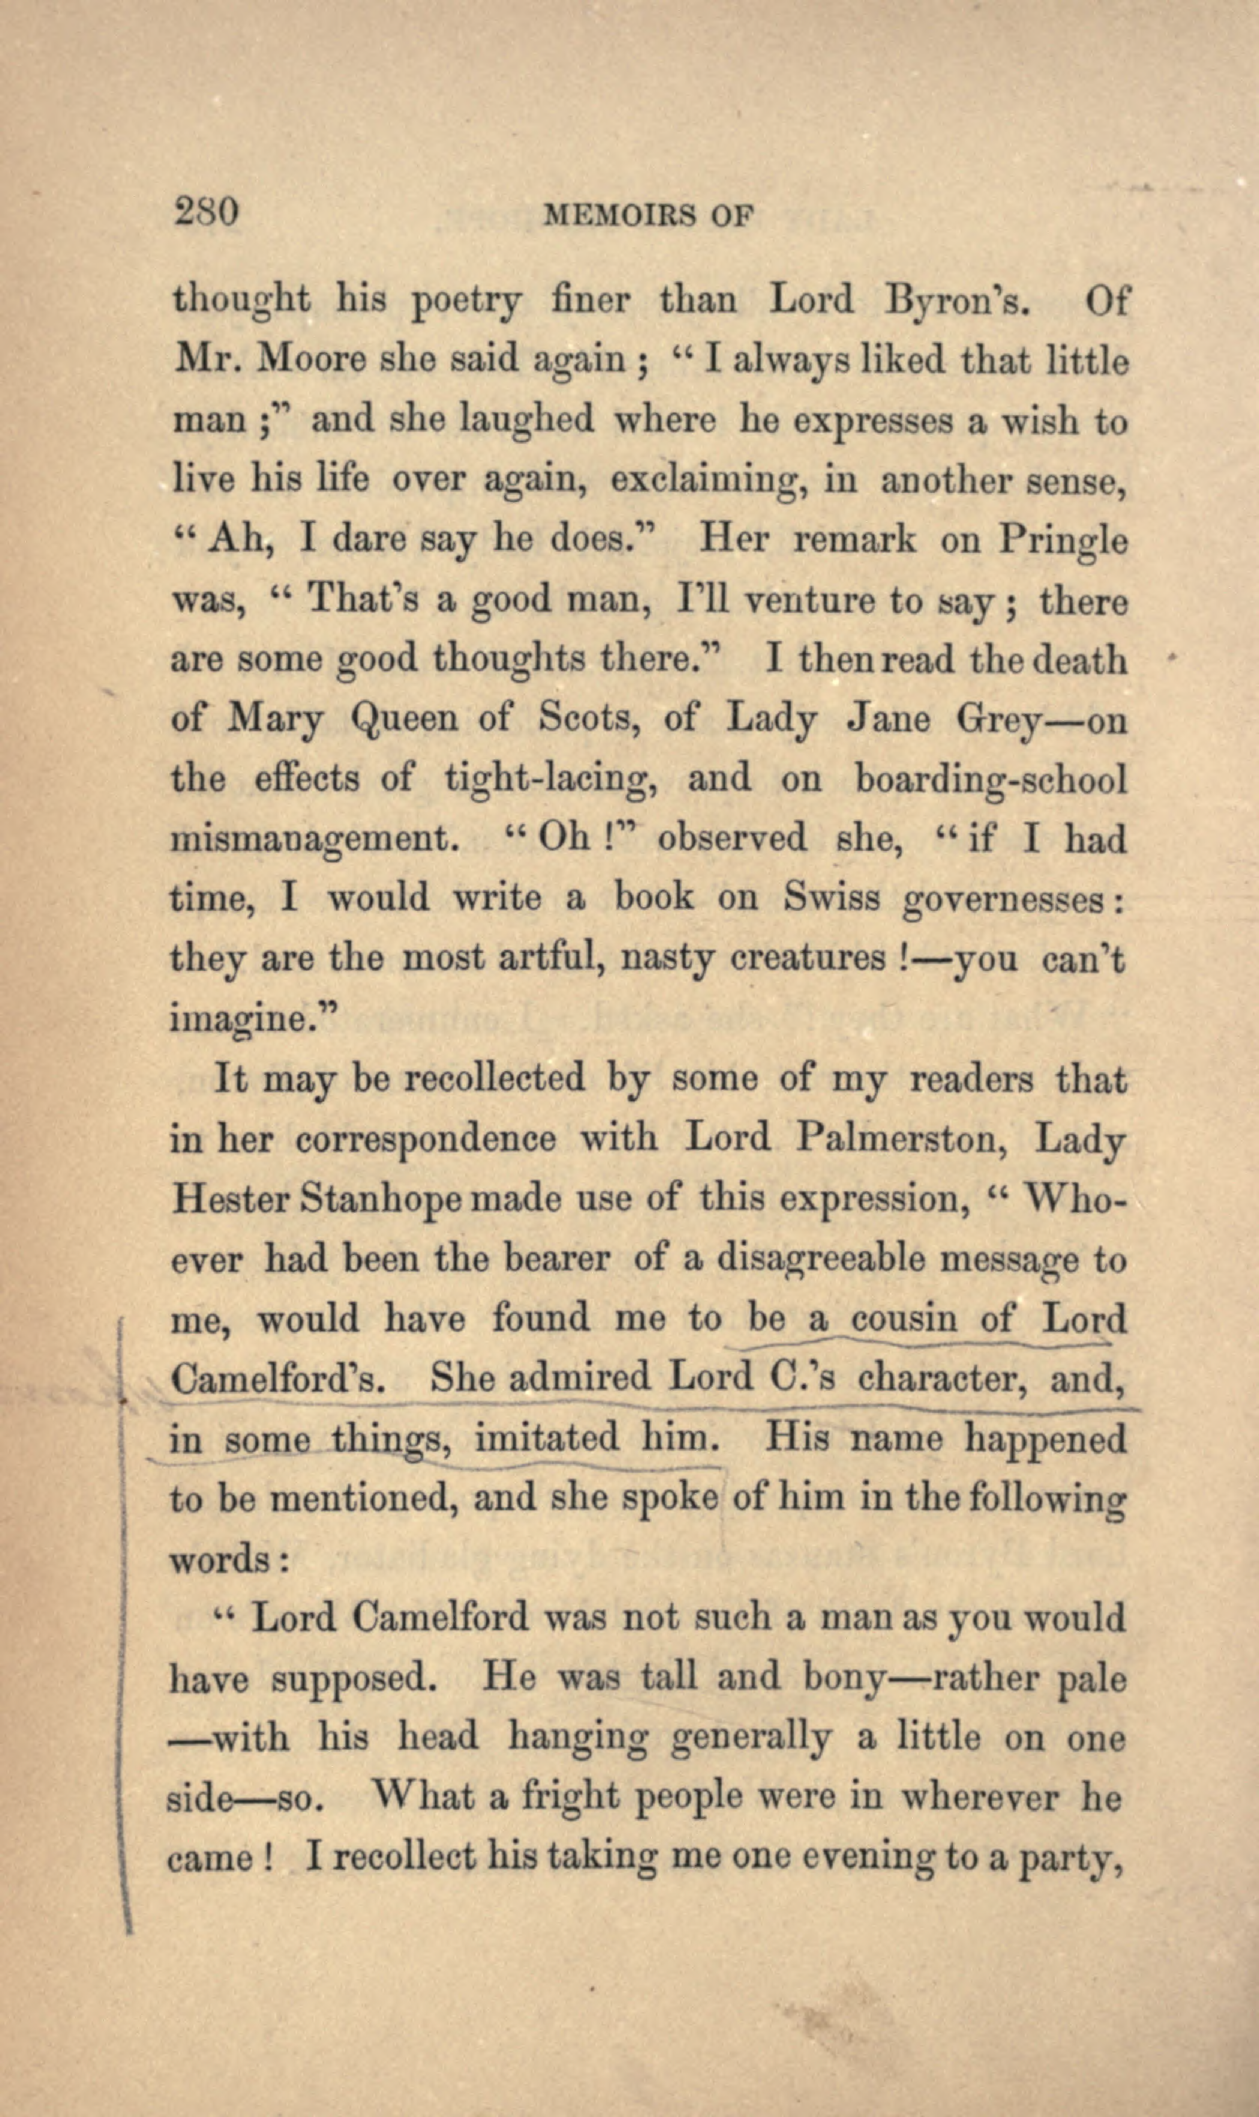 280 MEMOIRS OF
thought his poetry finer than Lord Byron's. Of
Mr. Moore she said again ; “ I always liked that little
man ;” and she laughed where he expresses a wish to
live his life over again, exclaiming, in another sense,
“ Ah, I dare say he does.” Her remark on Pringle
was, “ That's a good man, I'll venture to say ; there
are some good thoughts there.” I then read the death
of Mary Queen of Scots, of Lady Jane Grey—on
the effects of tight-lacing, and on boarding-school
mismanagement. “ Oh !” observed she, “ if I had
time, I would write a book on Swiss governesses :
they are the most artful, nasty creatures !—you can't
imagine.”
It may be recollected by some of my readers that
in her correspondence with Lord Palmerston, Lady
Hester Stanhope made use of this expression, “ Who-
ever had been the bearer of a disagreeable message to
me, would have found me to be a cousin of Lord
Camelford's. She admired Lord C.'s character, and,
in some things, imitated him. His name happened
to be mentioned, and she spoke of him in the following
words :
“ Lord Camelford was not such a man as you would
have supposed. He was tall and bony—rather pale
—with his head hanging generally a little on one
side—so. What a fright people were in wherever he
came ! I recollect his taking me one evening to a party,